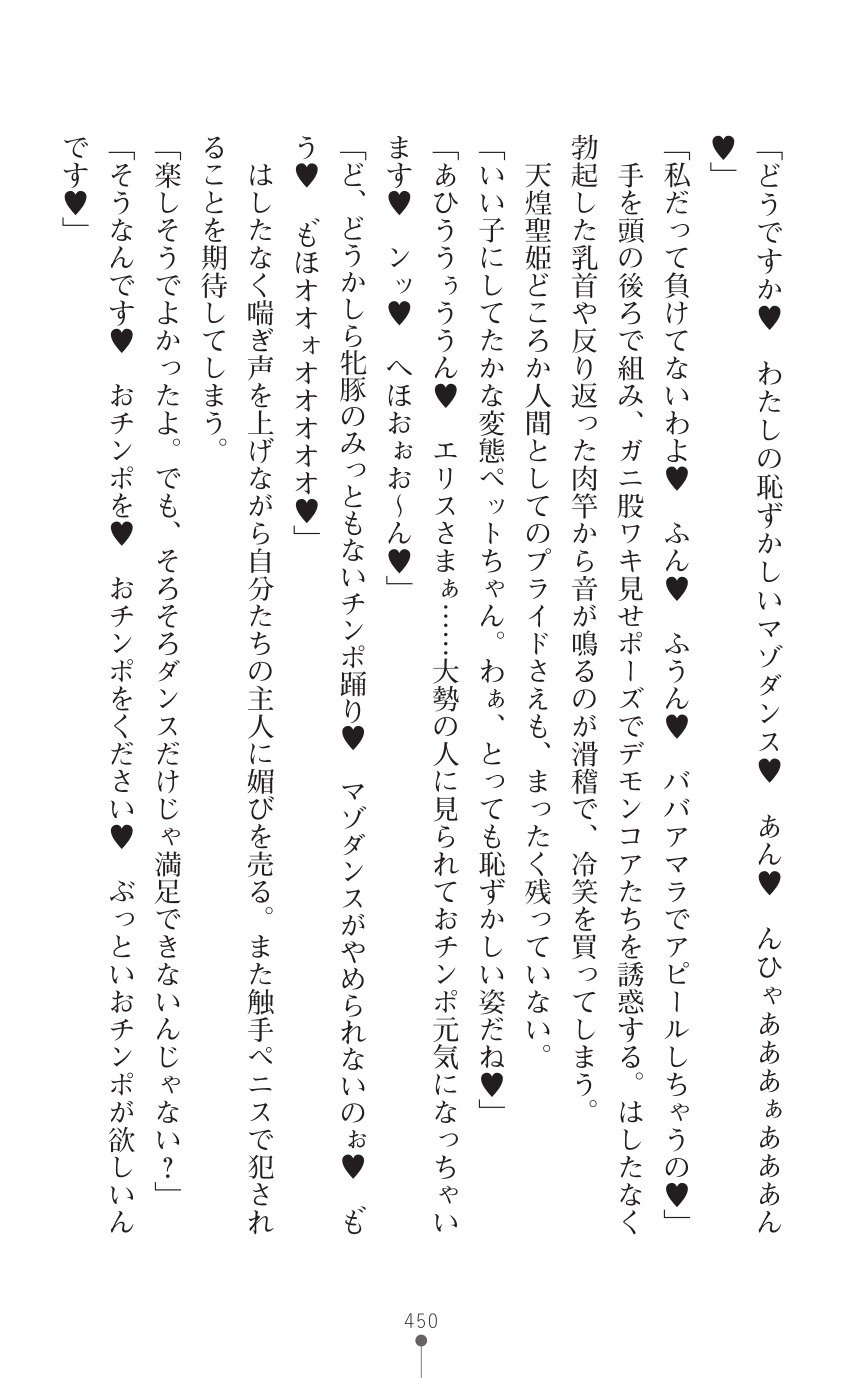 「どうですか♥　わたしの恥ずかしいマゾダンス♥　あん♥　んひゃあああぁあああん
♥」
「私だって負けてないわよ♥　ふん♥　ふうん♥　ババアマラでアピールしちゃうの♥」
　手を頭の後ろで組み、ガニ股ワキ見せポーズでデモンコアたちを誘惑する。はしたなく
勃起した乳首や反り返った肉竿から音が鳴るのが滑稽で、冷笑を買ってしまう。
　天煌聖姫どころか人間としてのプライドさえも、まったく残っていない。
「いい子にしてたかな変態ペットちゃん。わぁ、とっても恥ずかしい姿だね♥」
「あひううぅううん♥　エリスさまぁ……大勢の人に見られておチンポ元気になっちゃい
ます♥　ンッ♥　へほおぉお～ん♥」
「ど、どうかしら牝豚のみっともないチンポ踊り♥　マゾダンスがやめられないのぉ♥　も゛
う♥　も゛ほオオォオオオオオ♥」
　はしたなく喘ぎ声を上げながら自分たちの主人に媚びを売る。また触手ペニスで犯され
ることを期待してしまう。
「楽しそうでよかったよ。でも、そろそろダンスだけじゃ満足できないんじゃない？」
「そうなんです♥　おチンポを♥　おチンポをください♥　ぶっといおチンポが欲しいん
です♥」
450